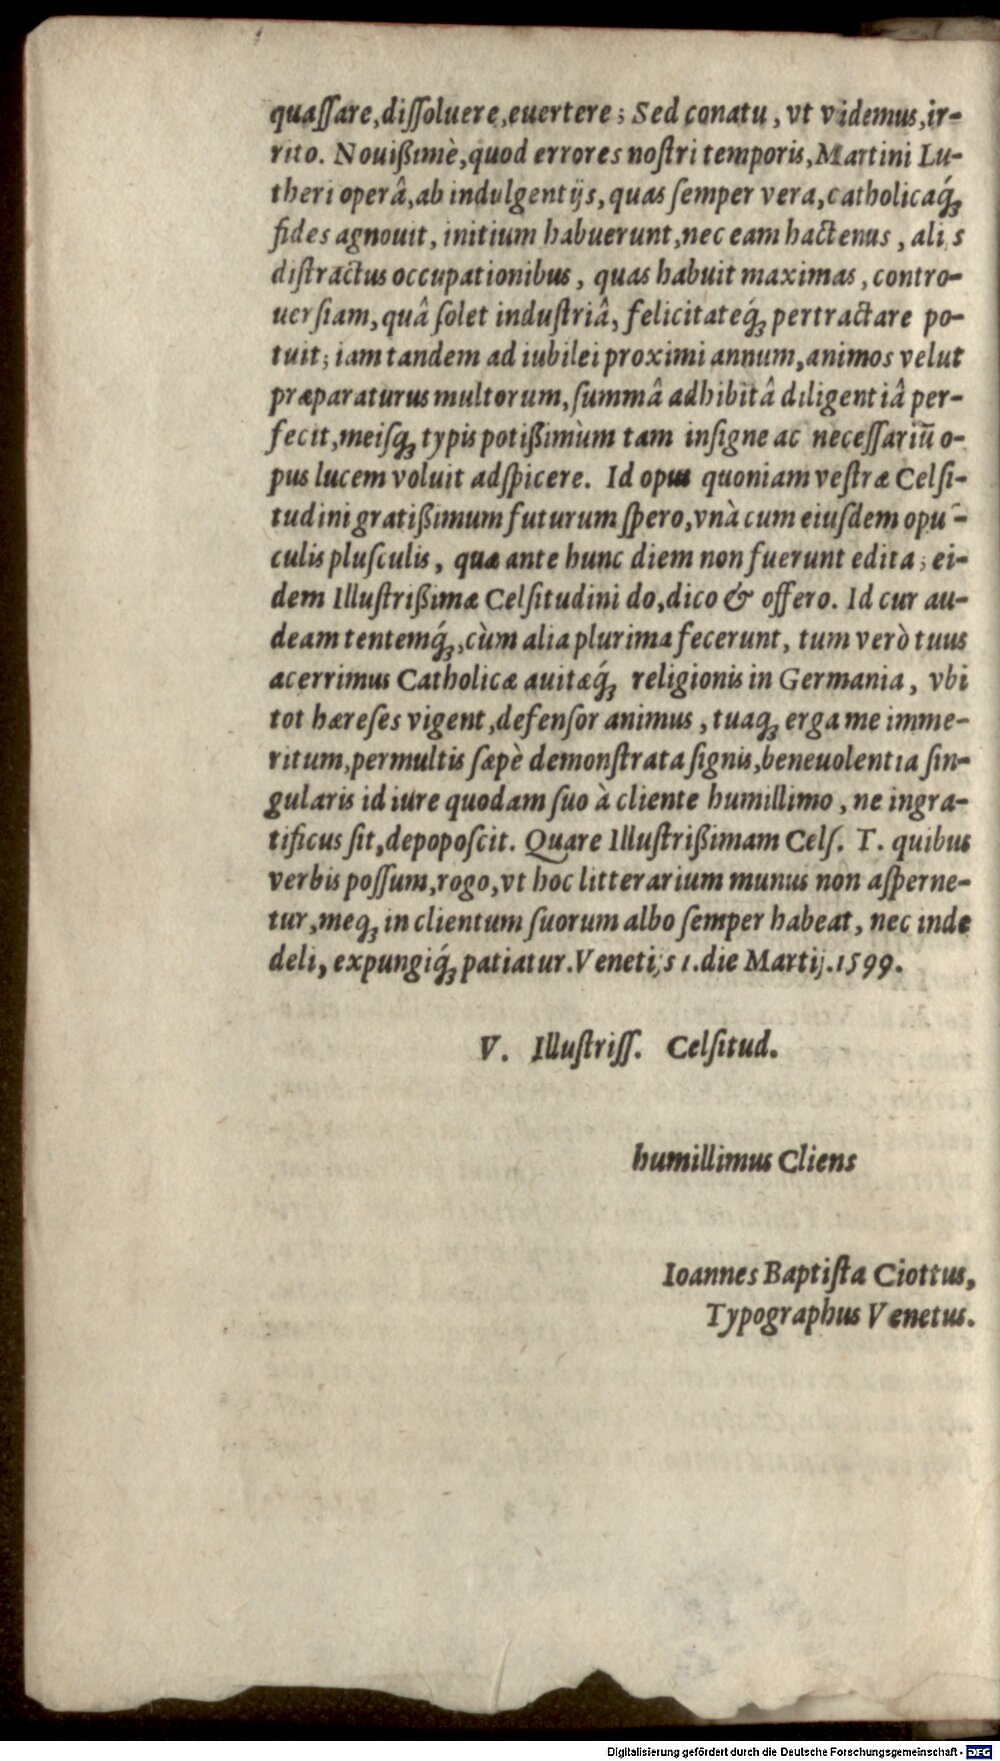 quaſſare, diſſoluere, euertere; Sed conatu, vt videmus, ir-
rito. Nouißimè, quod errores noſtri temporis, Martini Lu-
theri operâ, ab indulgentijs, quas ſemper vera, catholicaq́;
fides agnouit, initium habuerunt, nec eam hactenus, aliis
diſtractus occupationibus, quas habuit maximas, contro-
uerſiam, quâ ſolet induſtriâ, felicitateq́; pertractare po-
tuit; iam tandem ad iubilei proximi annum, animos velut
præparaturus multorum, ſummâ adhibitâ diligentiâ per-
fecit, meiſq; typis potißimùm tam inſigne ac neceſſariũ o-
pus lucem voluit adſpicere. Id opus quoniam veſtræ Celſi-
tudini gratißimum futurum ſpero, vnà cum eiuſdem opu-
culis pluſculis, quæ ante hunc diem non fuerunt edita; ei-
dem Illuſtrißimæ Celſitudini do, dico & offero. Id cur au-
deam tentemq́;, cùm alia plurima fecerunt, tum verò tuus
acerrimus Catholicæ auitæq́; religionis in Germania, vbi
tot hæreſes vigent, defenſor animus, tuaq; erga me imme-
ritum, permultis ſæpè demonſtrata ſignis, beneuolentia ſin-
gularis id iure quodam ſuo à cliente humillimo, ne ingra-
tificus ſit, depopoſcit. Quare Illuſtrißimam Celſ. T. quibus
verbis poſſum, rogo, vt hoc litterarium munus non aſperne-
tur, meq; in clientum ſuorum albo ſemper habeat, nec inde
deli, expungiq́; patiatur. Venetijs 1. die Martij. 1599.
V. Illuſtriſſ. Celſitud.
humillimus Cliens
Ioannes Baptiſta Ciottus,
Typographus Venetus.
Digitalisierung gefördert durch die Deutsche Forschungsgemeinschaft - DFG